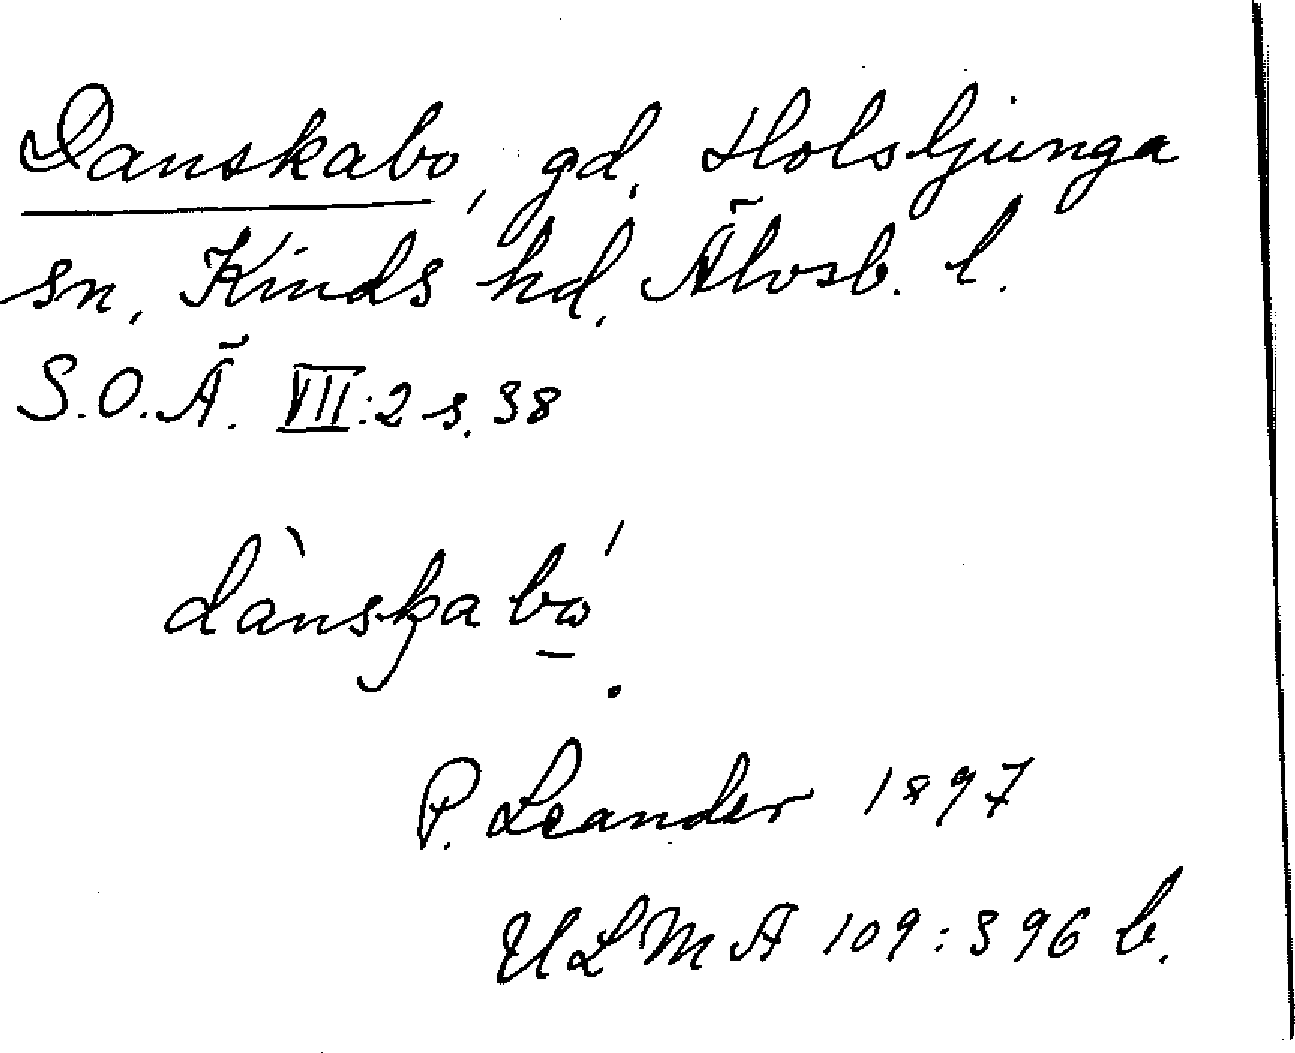 Danskabo, gd, Holsljunga
sn, Kinds hd, Älvsb. l.
S.O.Ä. VII:2 s. 38
dànskabώ.
P. Leander 1897
ULMA 109:396 b.